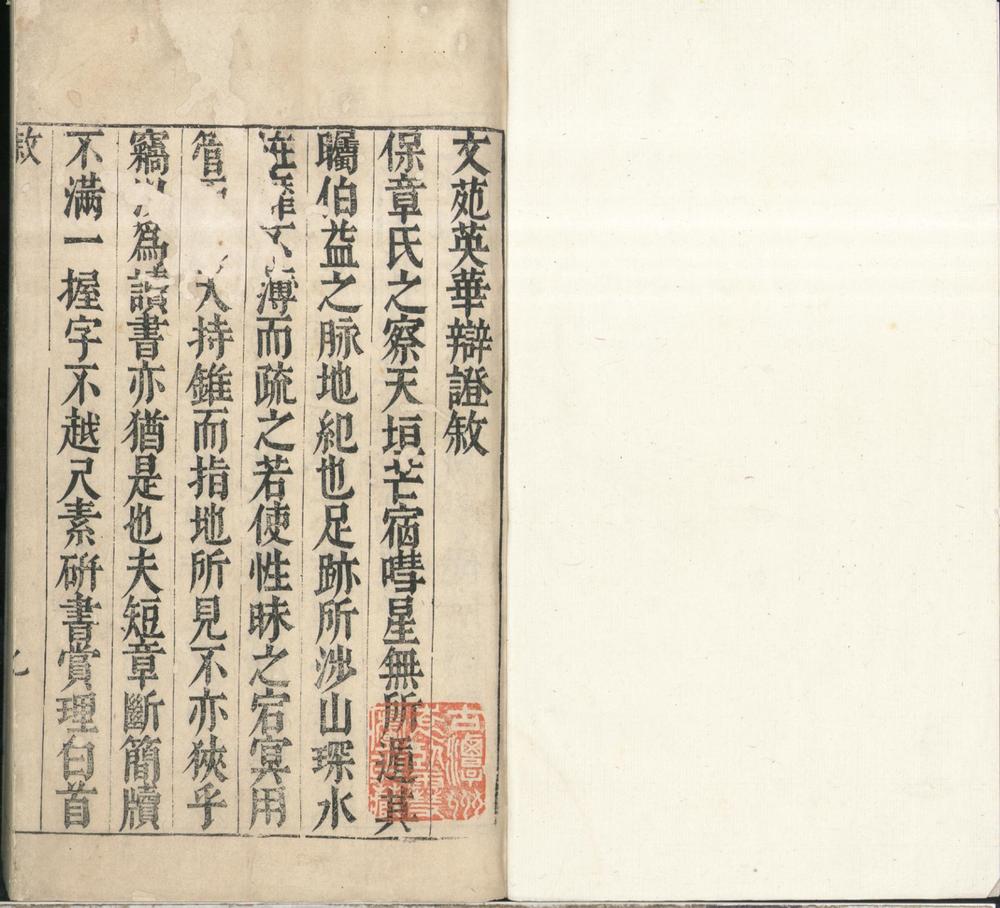 文苑英華辯證敘
保章氏之察天垣芒宿嘒星無所遁其
矚伯益之脉地紀也足跡所涉山琛水
不溥而疏之若使性昧之宕冥用
管 持錐而指地所見不亦狹乎
竊 為讀書亦猶是也夫短章斷簡牘
不滿一握字不越尺素硏書賞理白首
敘